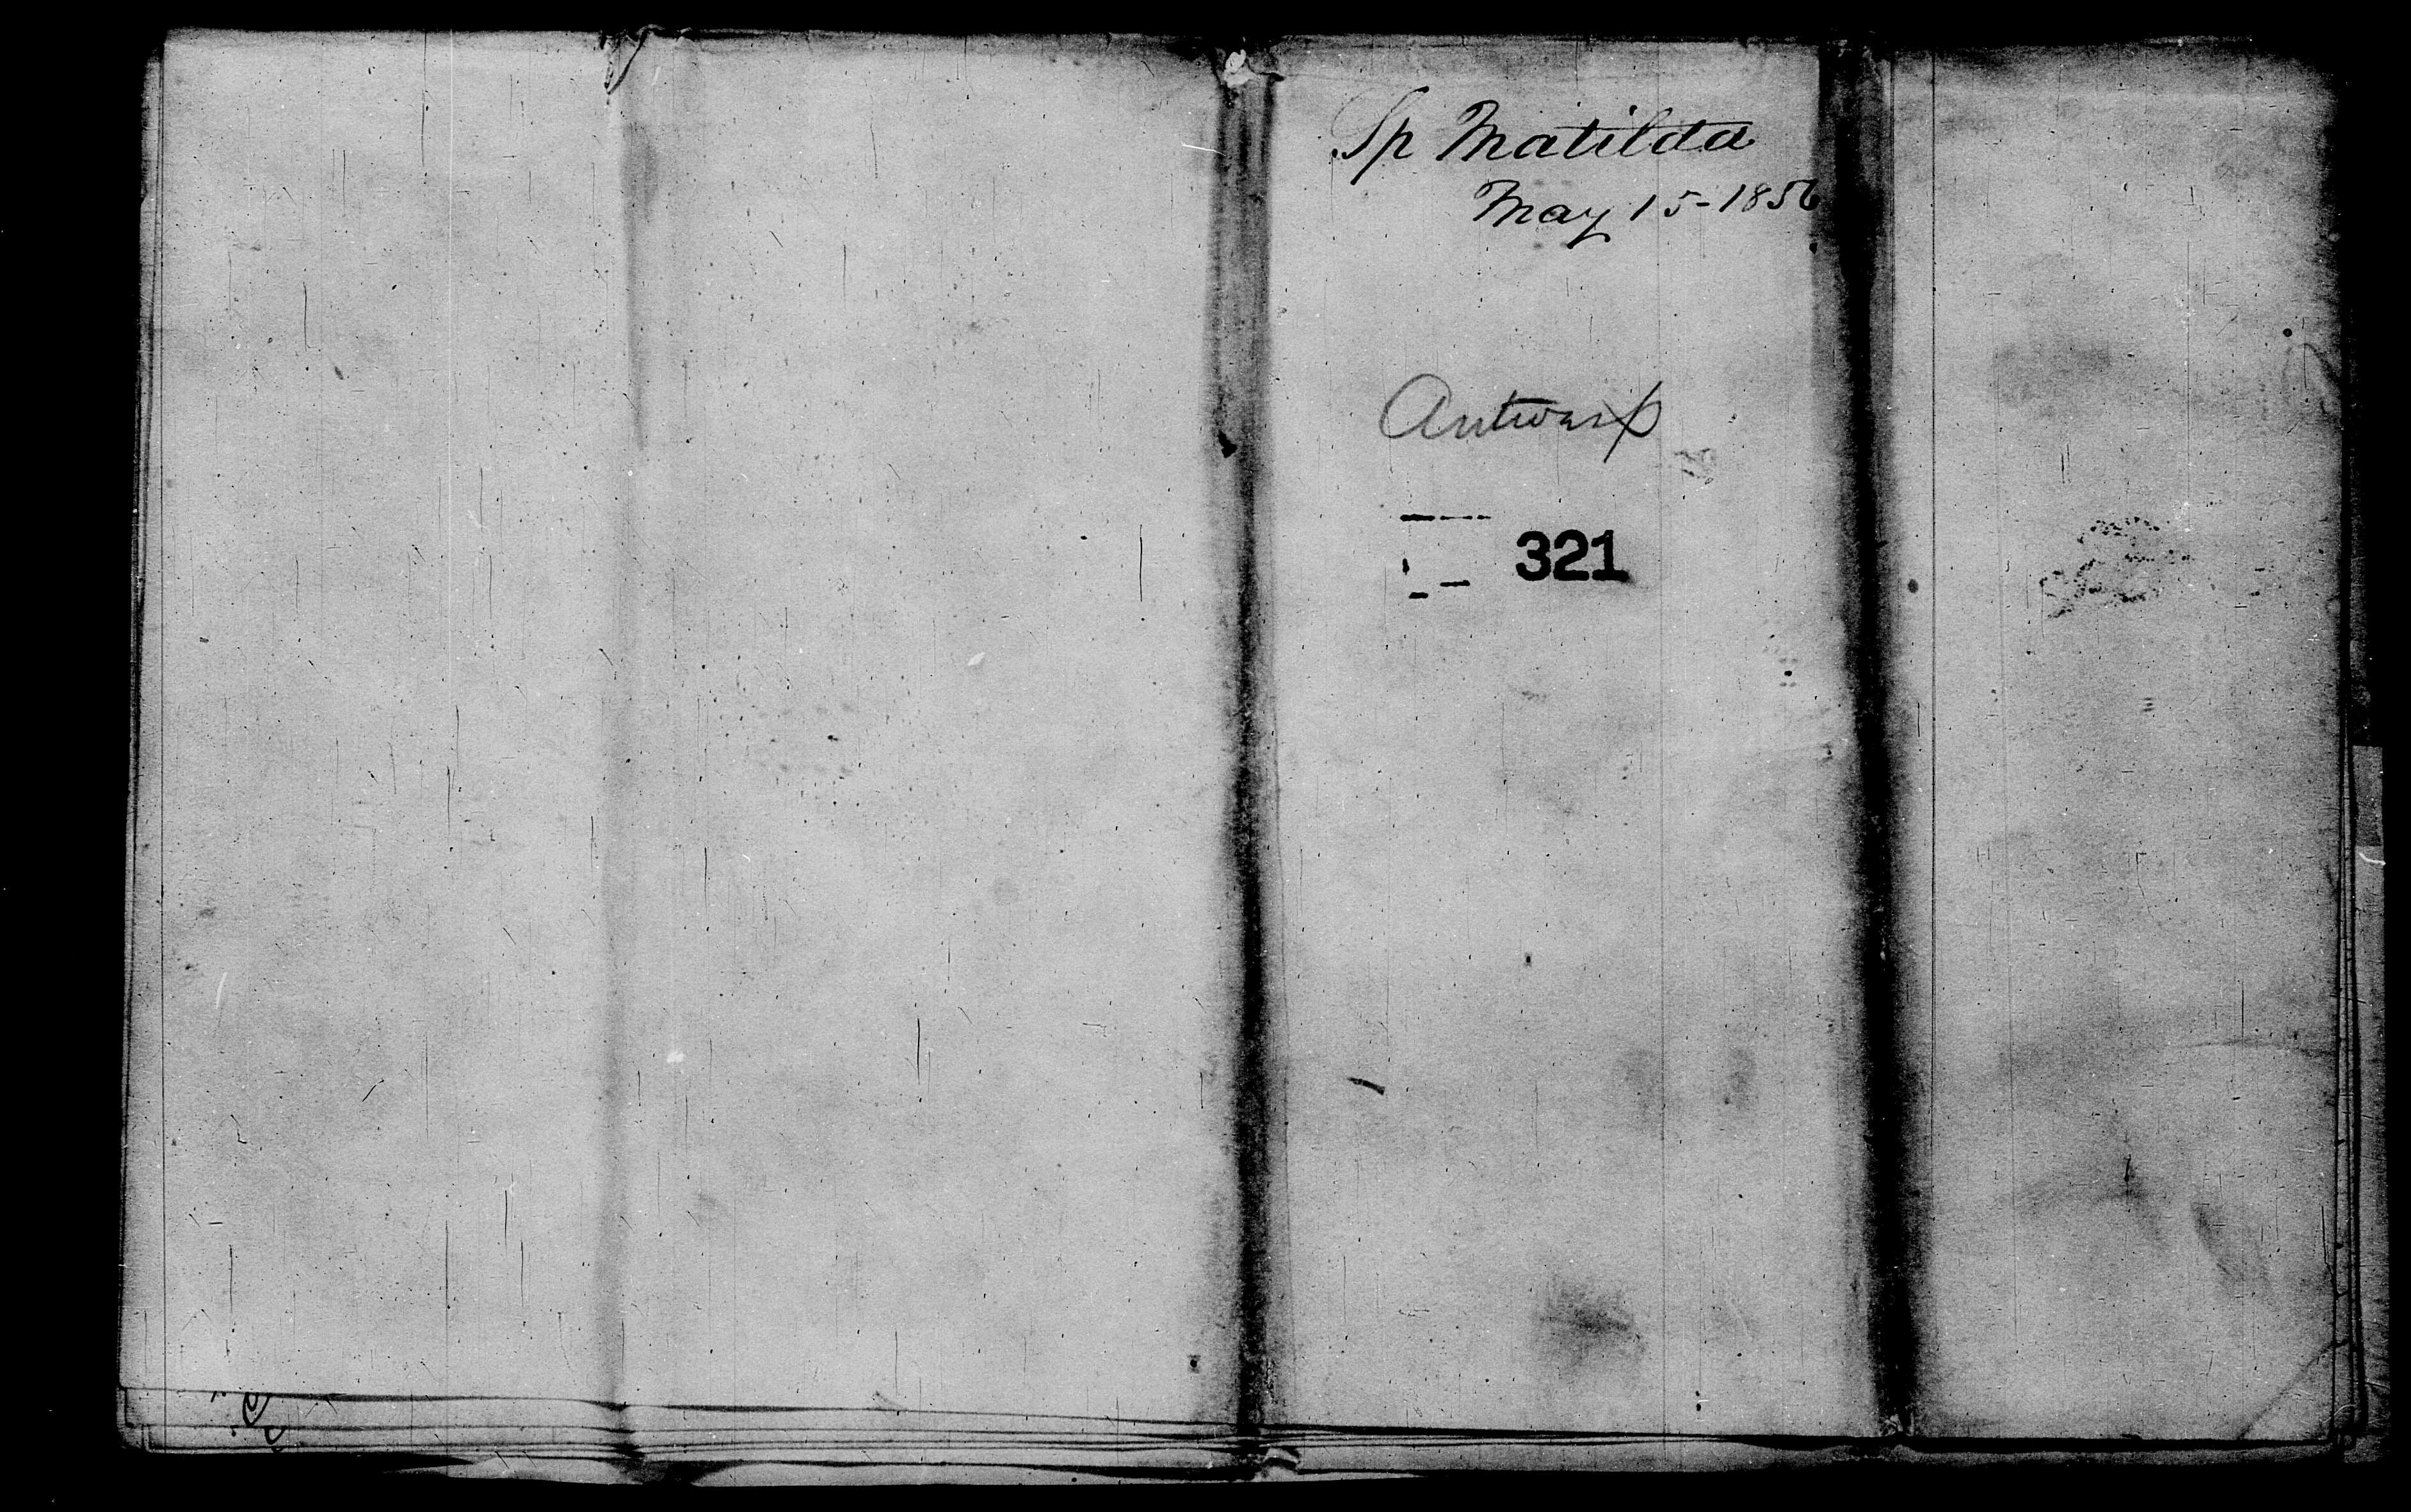 Sp Matilda
May 15-1856
Antwerp
321